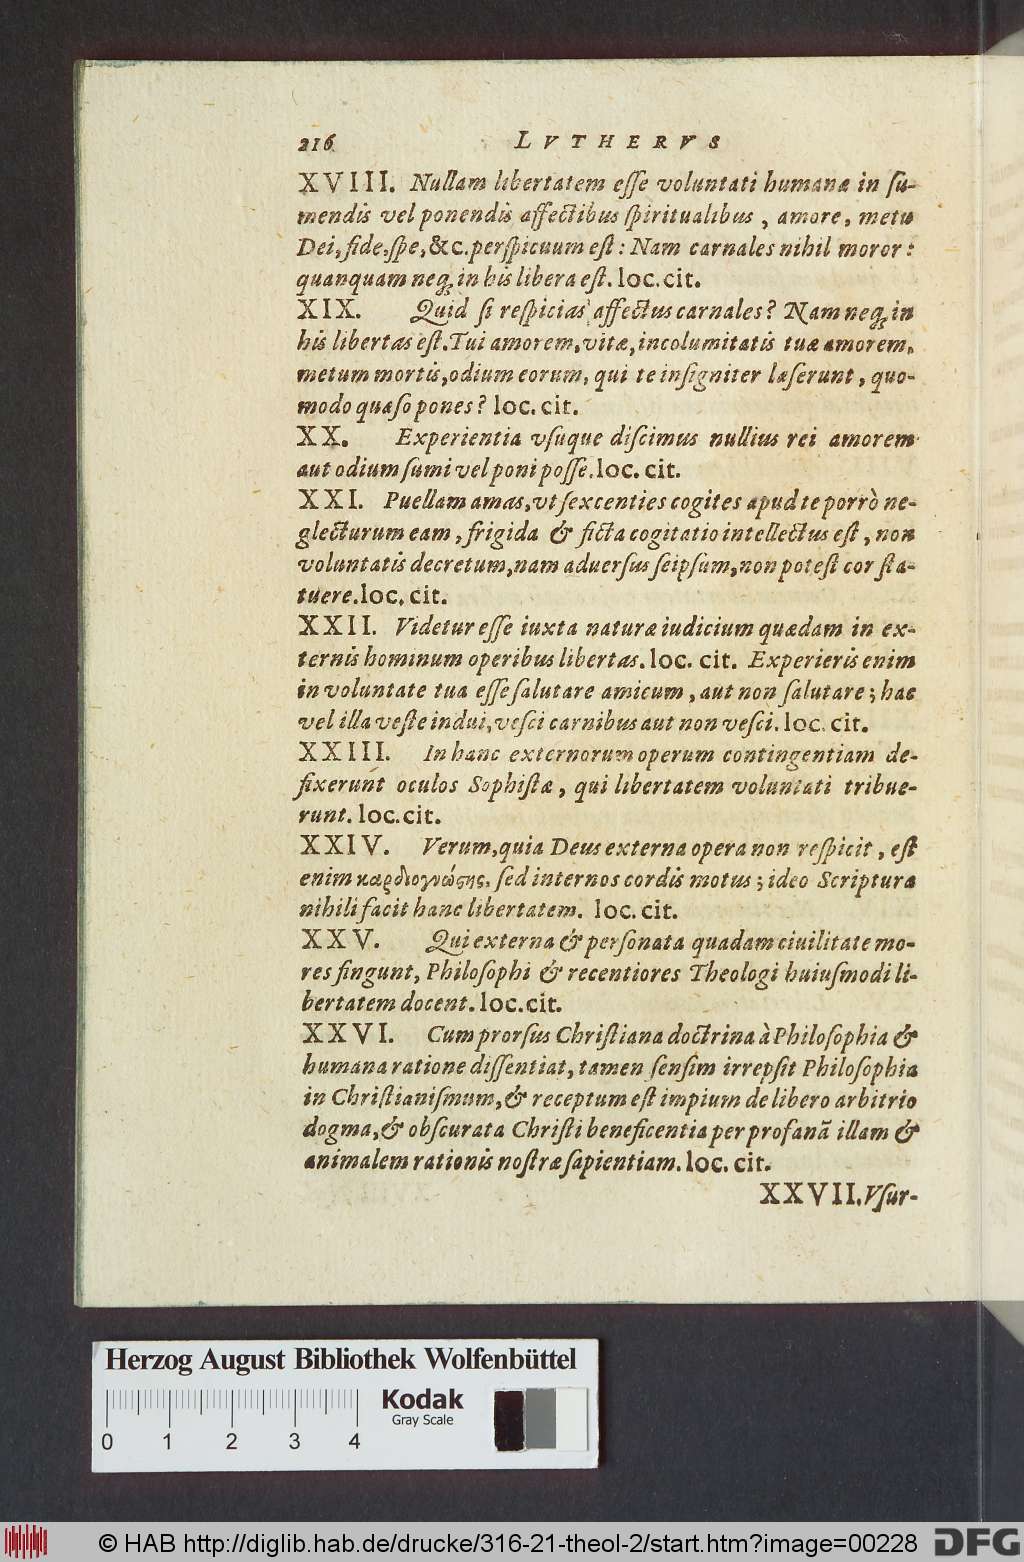 216 LVTHERVS
XVIII. Nullam libertatem eſſe voluntati humanæ in ſu-
mendis vel ponendis affectibus ſpiritualibus, amore, metu
Dei, fide, ſpe, &c. perſpicuum eſt: Nam carnales nihil moror:
quanquam neq; in his libera eſt. loc. cit.
XIX. Quid ſi reſpicias affectus carnales? Nam neq; in
his libertas eſt. Tui amorem, vitæ, incolumitatis tuæ amorem,
metum mortis, odium eorum, qui te inſigniter læſerunt, quo-
modo quæſo pones? loc. cit.
XX. Experientia vſuque diſcimus nullius rei amorem
aut odium ſumi vel poni poſſe. loc. cit.
XXI. Puellam amas, vt ſexcenties cogites apud te porrò ne-
glecturum eam, frigida & ficta cogitatio intellectus eſt, non
voluntatis decretum, nam aduerſus ſeipſum, non poteſt cor ſta-
tuere. loc. cit.
XXII. Videtur eſſe iuxta naturæ iudicium quædam in ex-
ternis hominum operibus libertas. loc. cit. Experieris enim
in voluntate tua eſſe ſalutare amicum, aut non ſalutare; hac
vel illa veſte indui, veſci carnibus aut non veſci. loc. cit.
XXIII. In hanc externorum operum contingentiam de-
fixerunt oculos Sophiſtæ, qui libertatem voluntati tribue-
runt. loc. cit.
XXIV. Verum, quia Deus externa opera non reſpicit, eſt
enim καρδιογνώσης, ſed internos cordis motus; ideo Scriptura
nihili facit hanc libertatem. loc. cit.
XXV. Qui externa & perſonata quadam ciuilitate mo-
res fingunt, Philoſophi & recentiores Theologi huiuſmodi li-
bertatem docent. loc. cit.
XXVI. Cum prorſus Chriſtiana doctrina à Philoſophia &
humana ratione diſſentiat, tamen ſenſim irrepſit Philoſophia
in Chriſtianiſmum, & receptum eſt impium de libero arbitrio
dogma, & obſcurata Chriſti beneficentia per profanā illam &
animalem rationis noſtræ ſapientiam. loc. cit.
XXVII. Vſur-
Herzog August Bibliothek Wolfenbüttel
Kodak
Gray Scale
0 1 2 3 4
© HAB http://diglib.hab.de/drucke/316-21-theol-2/start.htm?image=00228
DFG